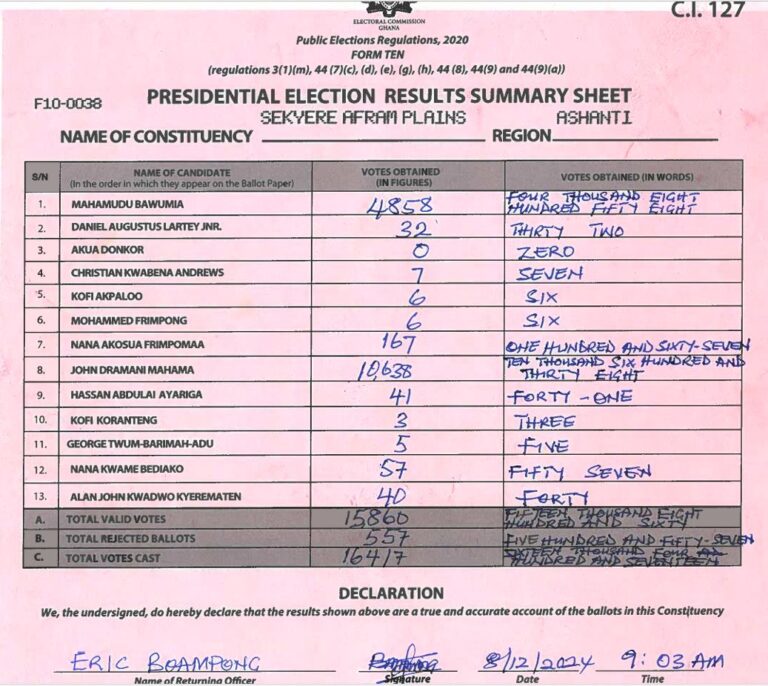 C.I. 127
ELECTORAL COMMISSION
GHANA
Public Elections Regulations, 2020
FORM TEN
(regulations 3(1)(m), 44 (7)(c), (d), (e), (g), (h), 44 (8), 44(9) and 44(9)(a))
F10-0038 PRESIDENTIAL ELECTION RESULTS SUMMARY SHEET
SEKYERE AFRAM PLAINS ASHANTI
NAME OF CONSTITUENCY REGION
S/N NAME OF CANDIDATE (In the order in which they appear on the Ballot Paper) VOTES OBTAINED (IN FIGURES) VOTES OBTAINED (IN WORDS)
1. MAHAMUDU BAWUMIA 4858 FOUR THOUSAND EIGHT HUNDRED FIFTY EIGHT
2. DANIEL AUGUSTUS LARTEY JNR. 32 THIRTY TWO
3. AKUA DONKOR 0 ZERO
4. CHRISTIAN KWABENA ANDREWS 7 SEVEN
5. KOFI AKPALOO 6 SIX
6. MOHAMMED FRIMPONG 6 SIX
7. NANA AKOSUA FRIMPOMAA 167 ONE HUNDRED AND SIXTY-SEVEN
8. JOHN DRAMANI MAHAMA 10,638 TEN THOUSAND SIX HUNDRED AND THIRTY EIGHT
9. HASSAN ABDULAI AYARIGA 41 FORTY-ONE
10. KOFI KORANTENG 3 THREE
11. GEORGE TWUM-BARIMAH-ADU 5 FIVE
12. NANA KWAME BEDIAKO 57 FIFTY SEVEN
13. ALAN JOHN KWADWO KYEREMATEN 40 FORTY
A. TOTAL VALID VOTES 15860 FIFTEEN THOUSAND EIGHT HUNDRED AND SIXTY
B. TOTAL REJECTED BALLOTS 557 FIVE HUNDRED AND FIFTY-SEVEN
C. TOTAL VOTES CAST 16417 SIXTEEN THOUSAND FOUR HUNDRED AND SEVENTEEN
DECLARATION
We, the undersigned, do hereby declare that the results shown above are a true and accurate account of the ballots in this Constituency
ERIC BOAMPONG 8/12/2024 9:03 AM
Name of Returning Officer Signature Date Time